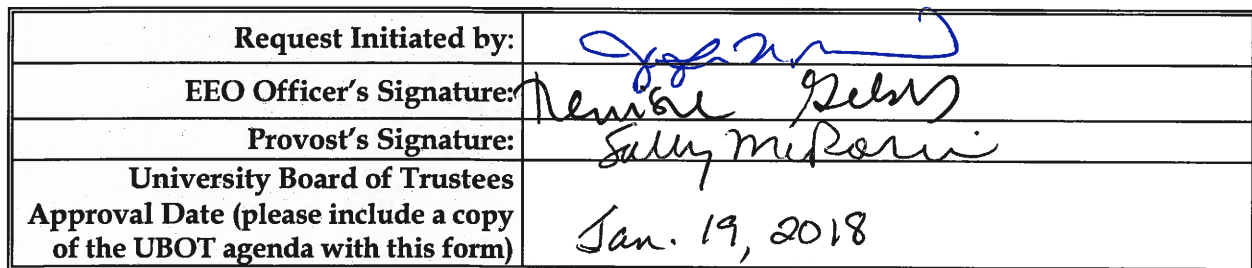 Request Initiated by:
EEO Officer's Signature: Denise
Provost's Signature: Sally McRorie
University Board of Trustees
Approval Date (please include a copy
of the UBOT agenda with this form)
Jan. 19, 2018